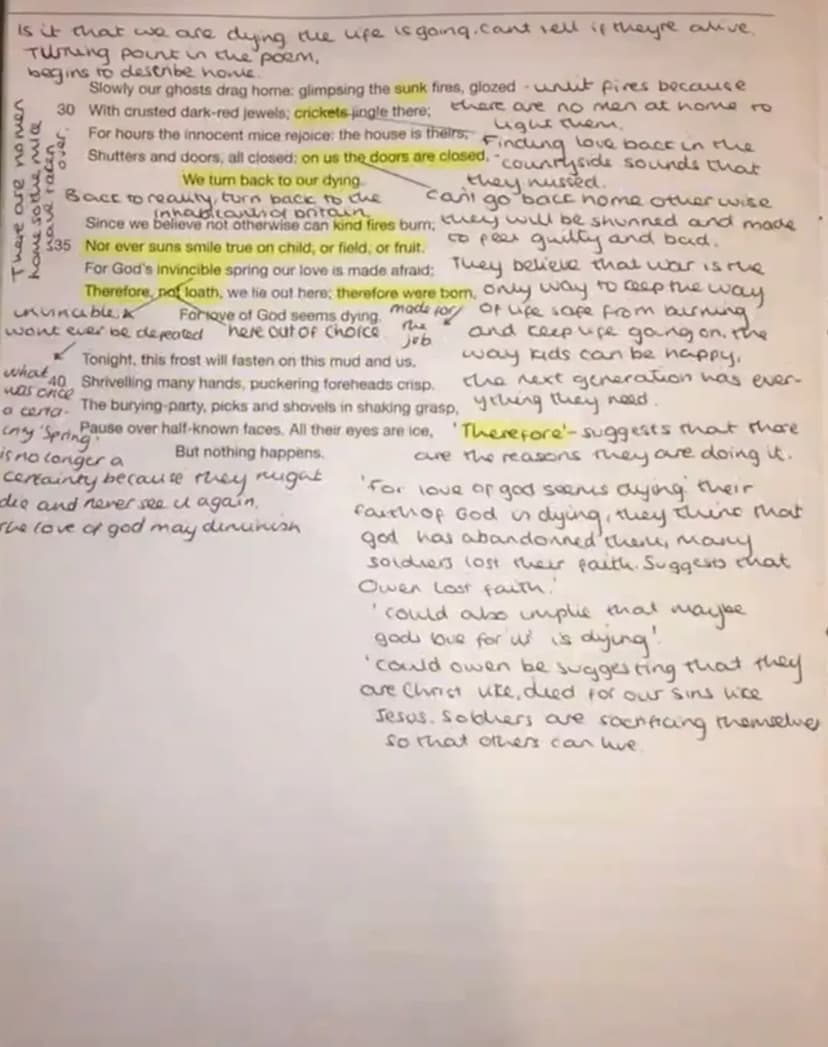 Is it that we are dying the life is going. Cant tell if theyre alive.
Turning point in the poem,
begins to describe home.
Slowly our ghosts drag home: glimpsing the sunk fires, glozed - unlit fires because
30 With crusted dark-red jewels; crickets jingle there; there are no men at home to
light them.
For hours the innocent mice rejoice: the house is theirs; Finding love back in the
Shutters and doors, all closed: on us the doors are closed, - countryside sounds that
they missed.
We turn back to our dying.
There are no men
home so the mice
have taken
over.
Back to reality, turn back to the
inhabitants of britain
can't go back home otherwise
Since we believe not otherwise can kind fires burn; they will be shunned and made
to feel guilty and bad.
35 Nor ever suns smile true on child, or field, or fruit.
For God's invincible spring our love is made afraid; They believe that war is the
Therefore, not loath, we lie out here; therefore were born, only way to keep the way
For love of God seems dying. made for of life safe from burning
the
job
invincible
wont ever be defeated here out of choice and keep life going on, the
Tonight, this frost will fasten on this mud and us, way kids can be happy,
40 Shrivelling many hands, puckering foreheads crisp. the next generation has ever-
The burying-party, picks and shovels in shaking grasp, ything they need.
Pause over half-known faces. All their eyes are ice, 'Therefore' - suggests that there
But nothing happens. are the reasons they are doing it.
what
was once
a certa-
inty 'Spring'
is no longer a
certainty because they might
die and never see it again.
The love of god may diminish
'For love of god seems dying' their
faith of God is dying, they think that
god has abandonned them, many
soldiers lost their faith. Suggests that
Owen lost faith.'
'could also implie that maybe
gods love for 'us' is dying'.
'Could owen be suggesting that they
are Christ like, died for our sins like
Jesus. Soldiers are sacrificing themselves
so that others can live.